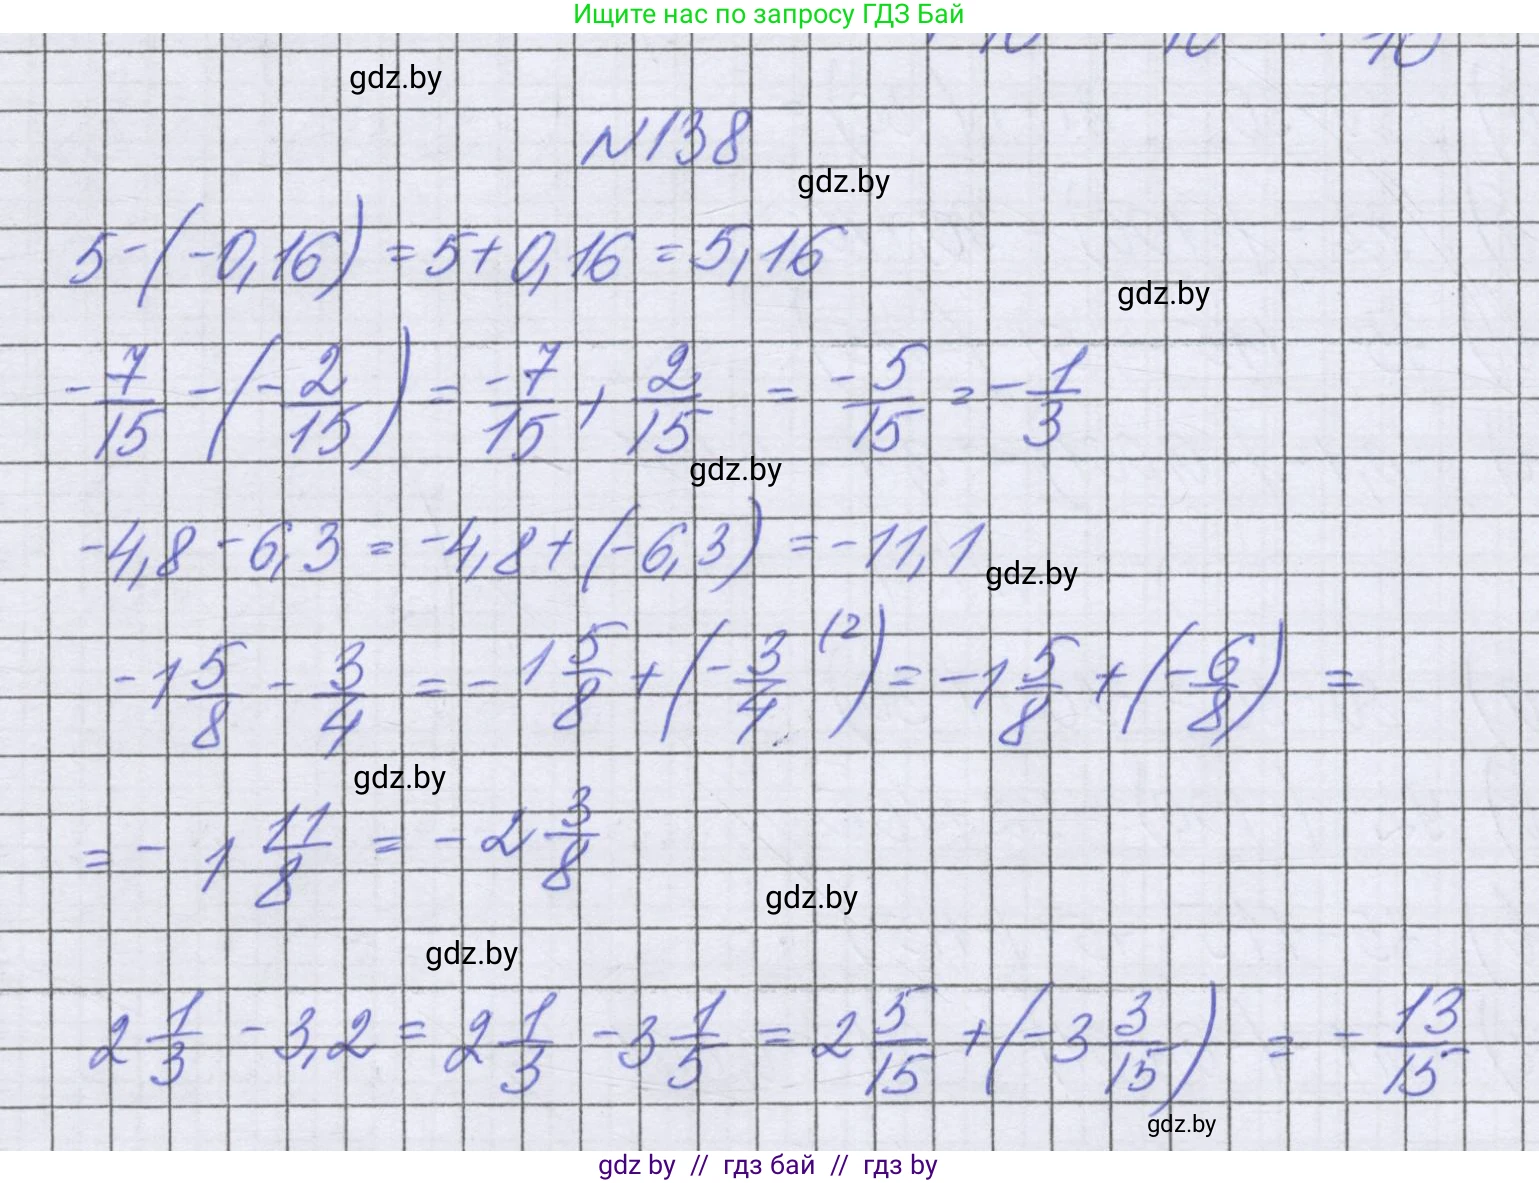 Ищите нас по запросу ГДЗ Бай
gdz.by
N138
gdz.by
5-(-0,16)=5+0,16=5,16
gdz.by
-7/15-(-2/15)=-7/15+2/15=-5/15=-1/3
gdz.by
-4,8-6,3=-4,8+(-6,3)=-11,1
gdz.by
-1 5/8-3/4=-1 5/8+(-3/4 (2)=-1 5/8+(-6/8)=
gdz.by
=-1 11/8=-2 3/8
gdz.by
gdz.by
2 1/3-3,2=2 1/3-3 1/5=2 5/15+(-3 3/15)=-13/15
gdz.by
gdz by // гдз бай // гдз by